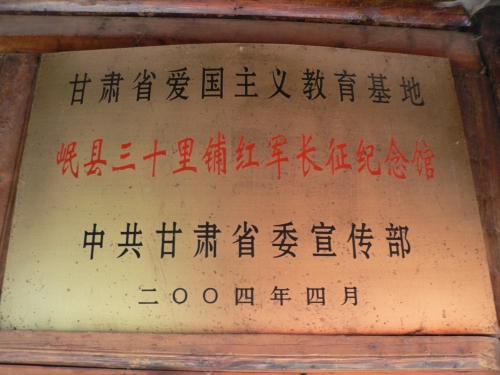 甘肃省爱国主义教育基地
岷县三十里铺红军长征纪念馆
中共甘肃省委宣传部
二〇〇四年四月